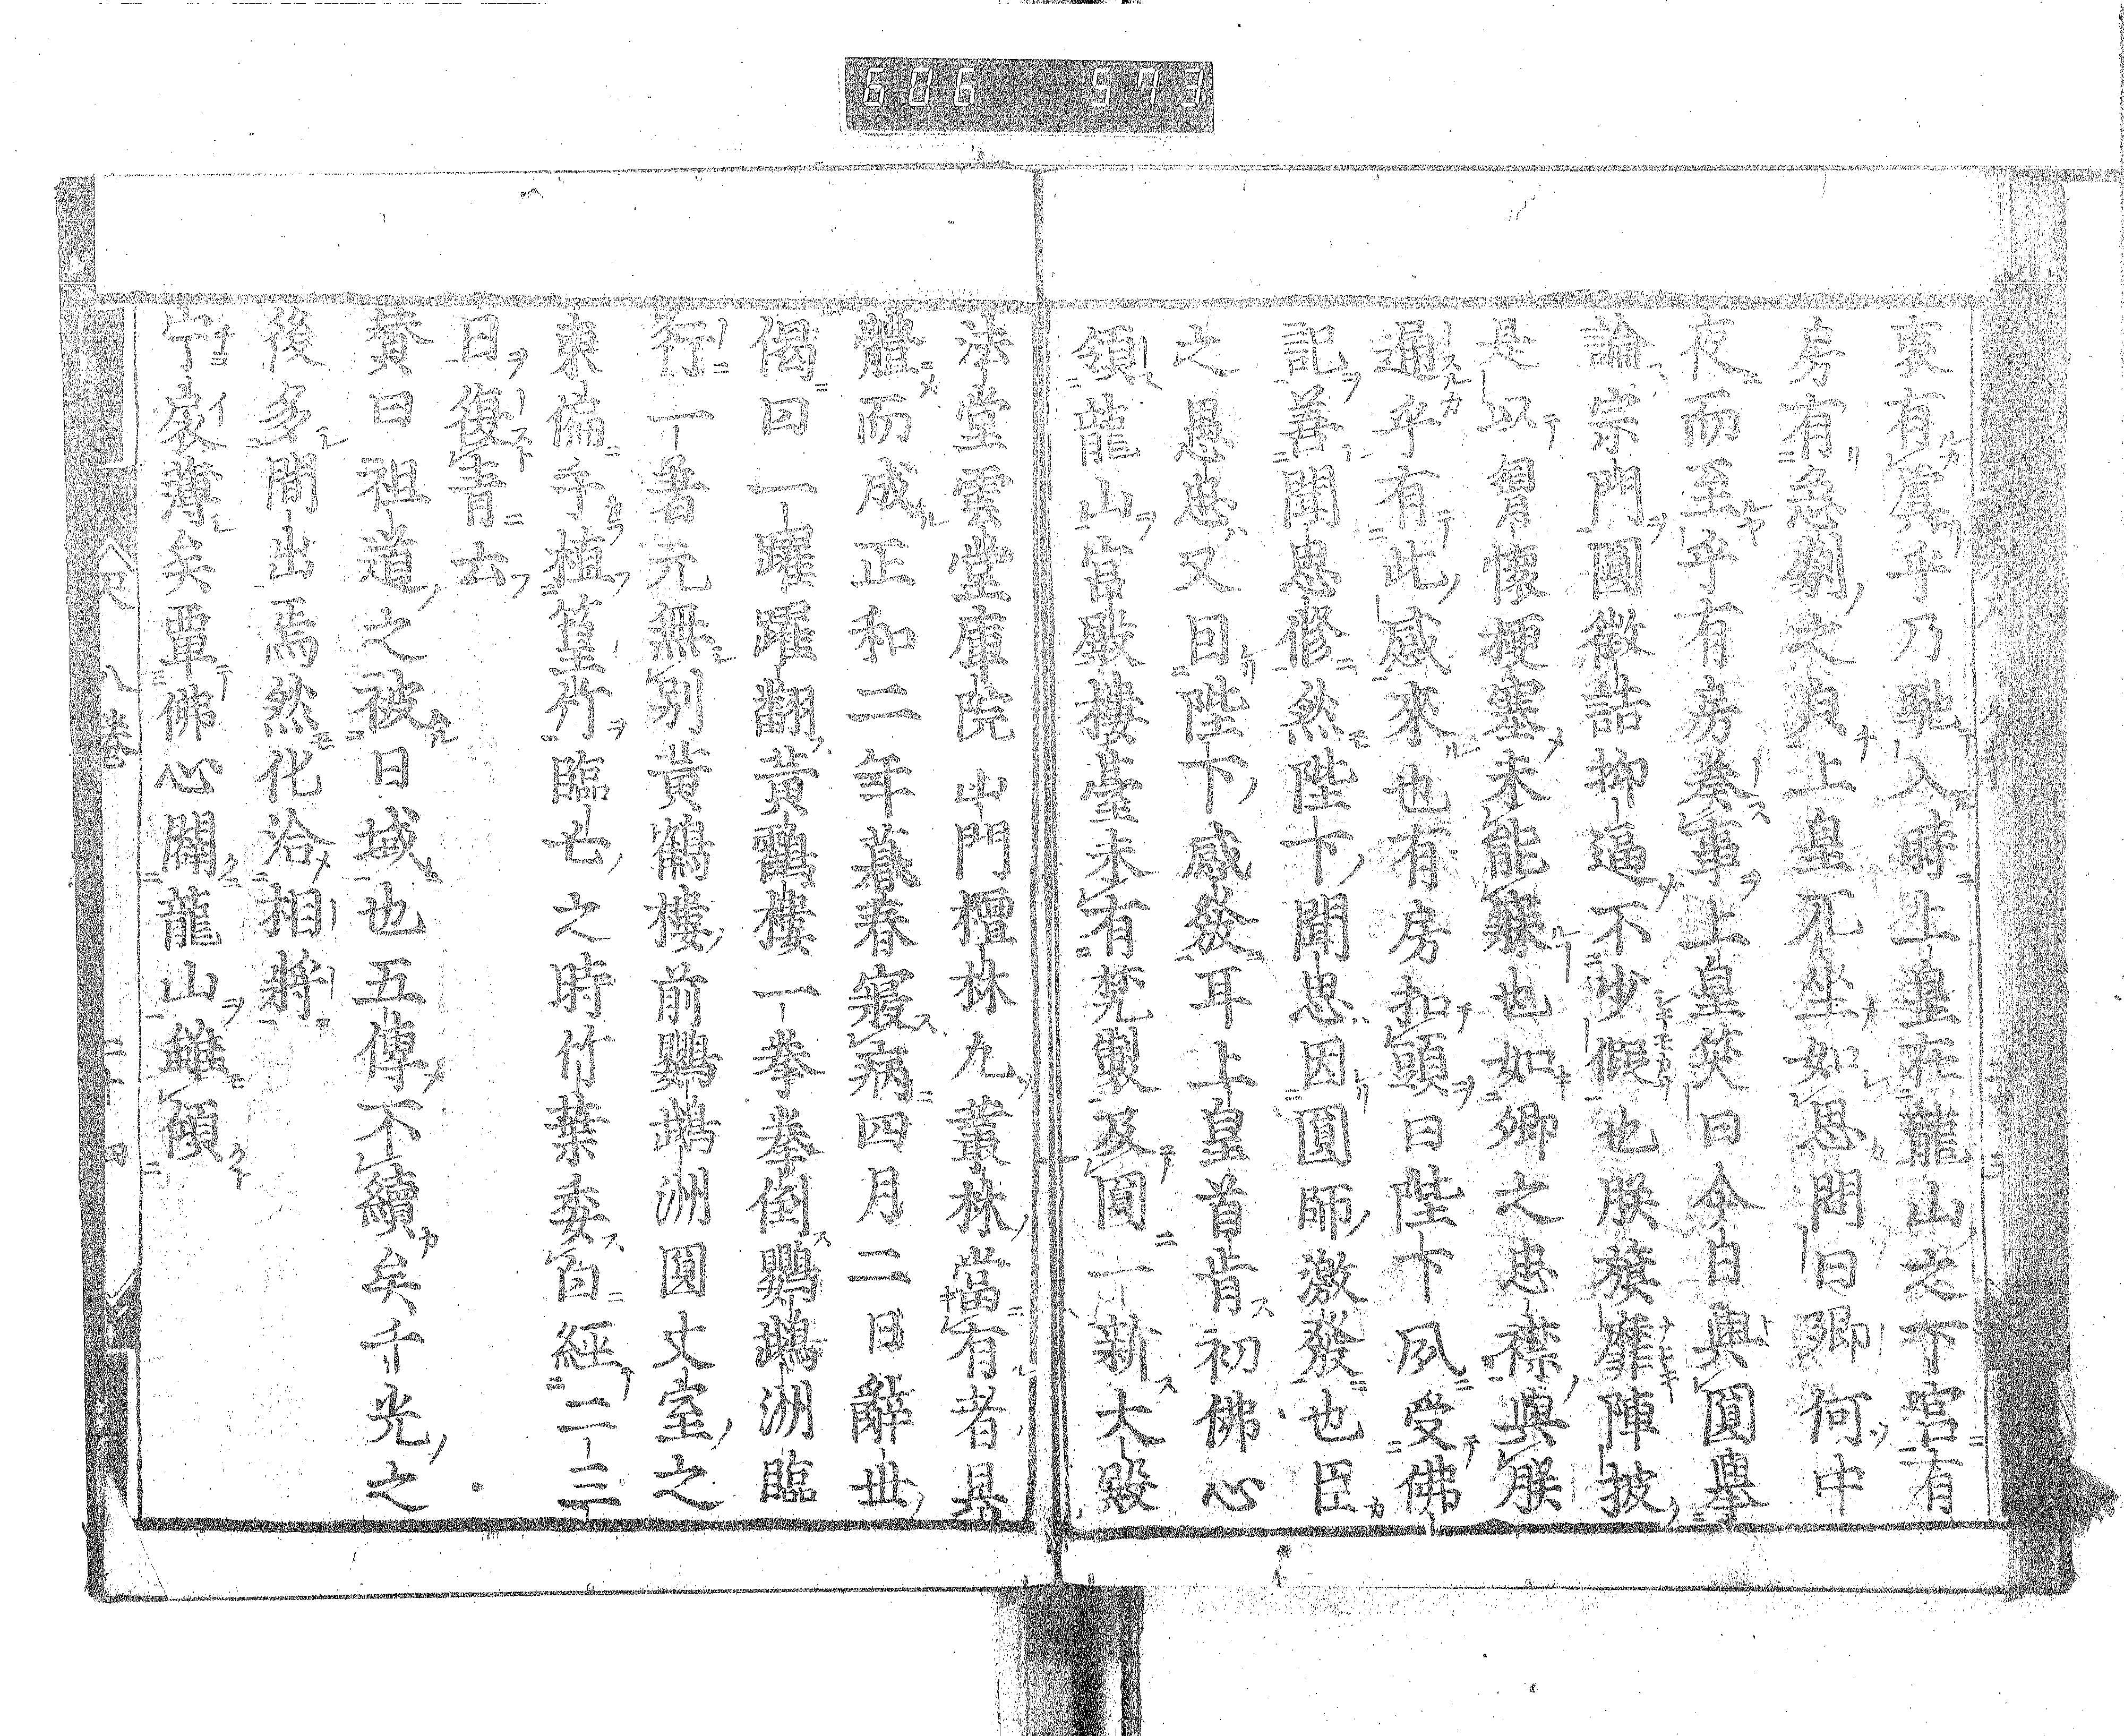 606 573
衷有寘乎乃馳入時上皇在龍山之下宮有
房有急劇之貟上皇兀坐如思問曰卿何中
夜而至乎有房奏事上皇笑曰今自與圓擧
論宗門圓徵詰抑逼不少假也朕旗靡陣披
是以胷懷梗塞未能寐也如卿之忠襟與朕
通乎有此感來也有房扣頭曰陛下夙受佛
記善聞思修然陛下聞思因圓師激發也臣
之愚忠又因陛下感發耳上皇首肯初佛心
領龍山宮殿樓臺未有梵製及圓一新大殿
法堂雲堂庫院山門檀林九叢林當有者具
體而成正和二年暮春寢病四月二日辭世
偈曰一躍躍翻黃鶴樓一拳拳倒鸚鵡洲臨
行一著元無別黃鶴樓前鸚鵡洲圓丈室之
東偏手植篁竹臨亡之時竹葉委白經二三
日復青去
賛曰祖道之被日域也五傳不續矣千光之
後多間出焉然化洽相將
宁扆薄矣單佛心闢龍山雖碩
八卷
二十四